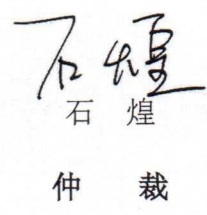 石煌
石 煌
仲 裁